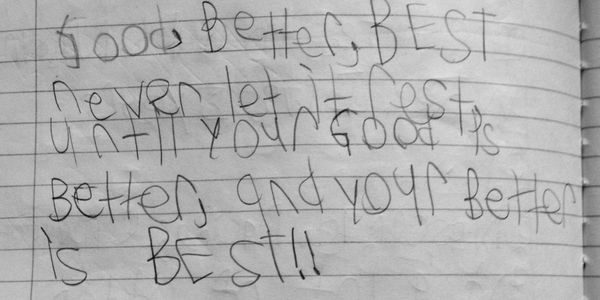 good, Better, BEST
never let it rest,
until your Good is
Better, and your Better
is BEST!!